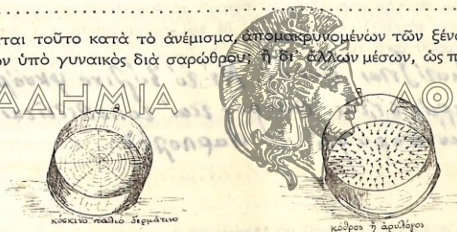 ται τοῦτο κατὰ τὸ ἀνέμισμα, ἀπομακρυνομένων τῶν ξένω
ων ὑπὸ γυναικὸς διὰ σαρώθρου; ἢ δι᾽ ἄλλων μέσων, ὡς π
ΑΔΗΜΙΑ ΑΘ
κόσκινο παλιό δερμάτινο
κόθρος ἢ ἀρυλόγος